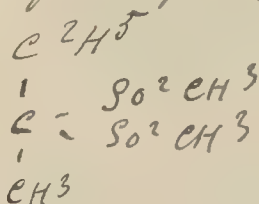 C²H⁵
SO²CH³
C = SO²CH³
CH³